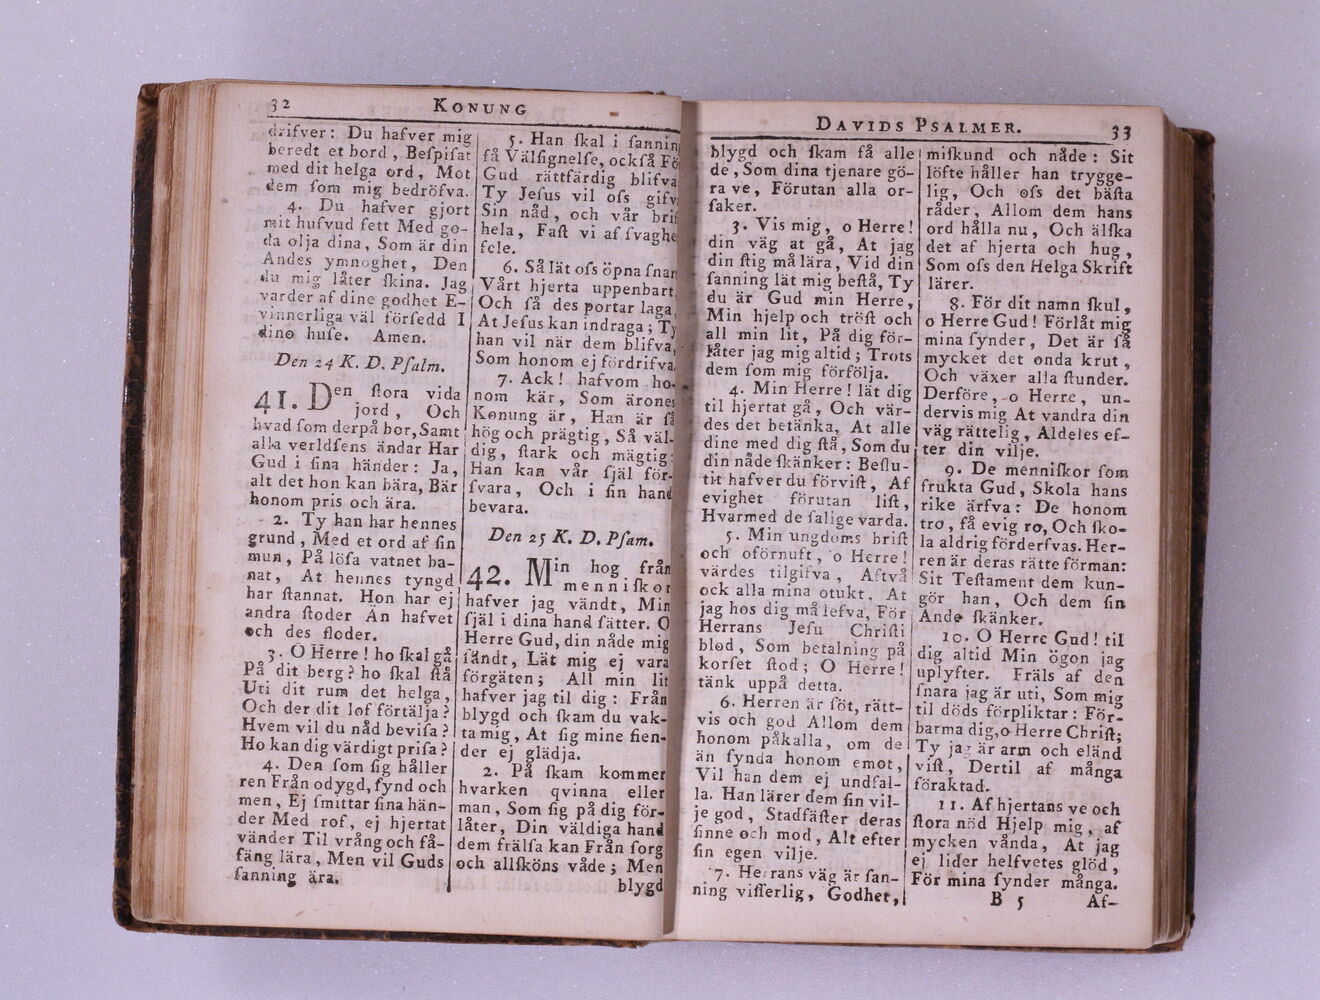 32
KONUNG
drifver: Du hafver mig
beredt et bord, Beſpiſat
med dit helga ord, Mot
dem ſom mig bedröfva.
4. Du hafver gjort
mit hufvud fett Med go-
da olja dina, Som är din
Andes ymnoghet, Den
du mig låter ſkina. Jag
varder af dine godhet E-
vinnerliga väl förſedd I
dino huſe. Amen.
Den 24 K. D. Pſalm.
41. Den ſtora vida
jord, Och
hvad ſom derpå bor, Samt
alla verldſens ändar Har
Gud i ſina händer: Ja,
alt det hon kan bära, Bär
honom pris och ära.
2. Ty han har hennes
grund, Med et ord af ſin
mun, På löſa vatnet ba-
nat, At hennes tyngd
har ſtannat. Hon har ej
andra ſtoder Än hafvet
och des floder.
3. O Herre! ho ſkal gå
På dit berg? ho ſkal ſtå
Uti dit rum det helga,
Och der dit lof förtälja?
Hvem vil du nåd beviſa?
Ho kan dig värdigt priſa?
4. Den ſom ſig håller
ren Från odygd, ſynd och
men, Ej ſmittar ſina hän-
der Med rof, ej hjertat
vänder Til vrång och få-
fäng lära, Men vil Guds
ſanning ära.
5. Han ſkal i ſannin
få Välſignelſe, ockſå Fö
Gud rättfärdig blifva
Ty Jeſus vil oſs gifv
Sin nåd, och vår briſ
hela, Faſt vi af ſvaghe
fele.
6. Så lät oſs öpna ſnar
Vårt hjerta uppenbart,
Och få des portar laga,
At Jeſus kan indraga; Ty
han vil när dem blifva,
Som honom ej fördrifva.
7. Ack! hafvom ho-
nom kär, Som ärones
Konung är, Han är få
hög och prägtig, Så väl-
dig, ſtark och mägtig:
Han kan vår ſjäl för-
ſvara, Och i ſin hand
bevara.
Den 25 K. D. Pſam.
42. Min hog från
menniſkor
hafver jag vändt, Min
ſjäl i dina hand ſätter. O
Herre Gud, din nåde mig
ſändt, Lät mig ej vara
förgäten; All min lit
hafver jag til dig: Från
blygd och ſkam du vak-
ta mig, At ſig mine fien-
der ej glädja.
2. På ſkam kommer
hvarken qvinna eller
man, Som ſig på dig för-
låter, Din väldiga hand
dem frälſa kan Från ſorg
och allſköns våde; Men
blygd
DAVIDS PSALMER.
33
blygd och ſkam få alle
de, Som dina tjenare gö-
ra ve, Förutan alla or-
ſaker.
3. Vis mig, o Herre!
din väg at gå, At jag
din ſtig må lära, Vid din
ſanning lät mig beſtå, Ty
du är Gud min Herre,
Min hjelp och tröſt och
all min lit, På dig för-
låter jag mig altid; Trots
dem ſom mig förfölja.
4. Min Herre! lät dig
til hjertat gå, Och vär-
des det betänka, At alle
dine med dig ſtå, Som du
din nåde ſkänker: Beſlu-
tit hafver du förviſt, Af
evighet förutan liſt,
Hvarmed de ſalige varda.
5. Min ungdoms briſt
och oförnuft, o Herre!
värdes tilgifva, Aftvå
ock alla mina otukt, At
jag hos dig må lefva, För
Herrans Jeſu Chriſti
blod, Som betalning på
korſet ſtod; O Herre!
tänk uppå detta.
6. Herren är ſöt, rätt-
vis och god Allom dem
honom påkalla, om de
än ſynda honom emot,
Vil han dem ej undfal-
la. Han lärer dem ſin vil-
je god, Stadfäſter deras
ſinne och mod, Alt efter
ſin egen vilje.
7. Herrans väg är ſan-
ning viſſerlig, Godhet,
miſkund och nåde: Sit
löfte håller han trygge-
lig, Och oſs det bäſta
råder, Allom dem hans
ord hålla nu, Och älſka
det af hjerta och hug,
Som oſs den Helga Skrift
lärer.
8. För dit namn ſkul,
o Herre Gud! Förlåt mig
mina ſynder, Det är få
mycket det onda krut,
Och växer alla ſtunder.
Derföre, o Herre, un-
dervis mig At vandra din
väg rättelig, Aldeles ef-
ter din vilje.
9. De menniſkor ſom
frukta Gud, Skola hans
rike ärfva: De honom
tro, få evig ro, Och ſko-
la aldrig förderfvas. Her-
ren är deras rätte förman:
Sit Teſtament dem kun-
gör han, Och dem ſin
Ande ſkänker.
10. O Herre Gud! til
dig altid Min ögon jag
uplyfter. Fräls af den
ſnara jag är uti, Som mig
til döds förpliktar: För-
barma dig, o Herre Chriſt;
Ty jag är arm och eländ
viſt, Dertil af många
föraktad.
11. Af hjertans ve och
ſtora nöd Hjelp mig, af
mycken vånda, At jag
ej lider helfvetes glöd,
För mina ſynder många.
B 5 Af-